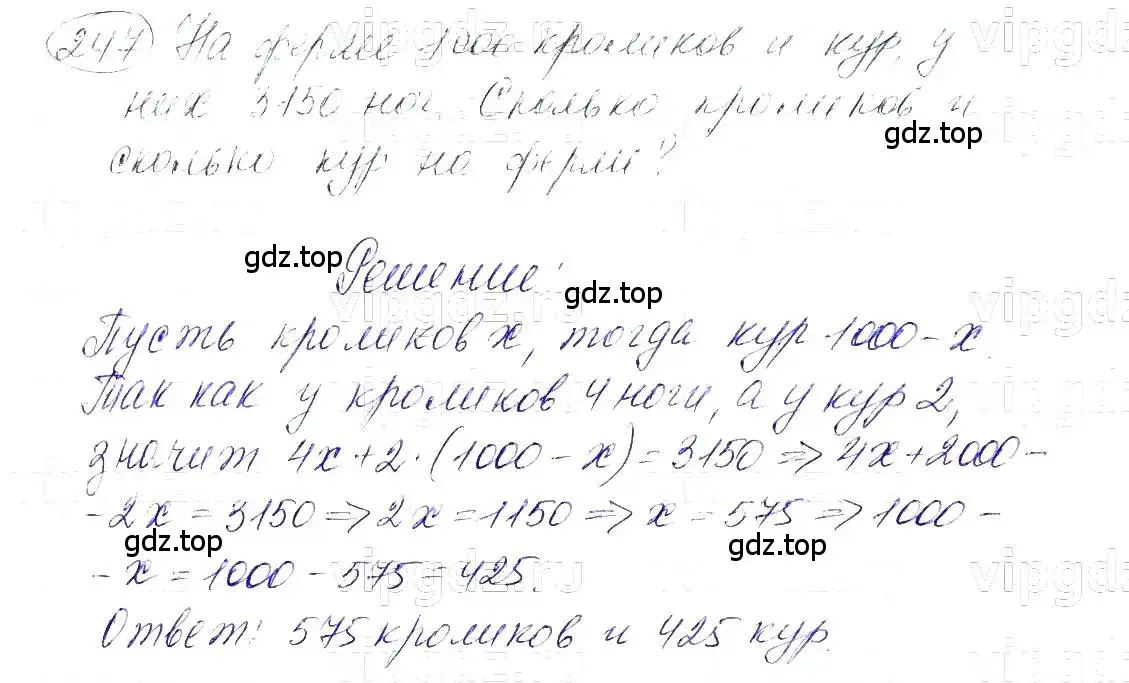 247 На ферме 1000 кроликов и кур, у
них 3150 ног. Сколько кроликов и
сколько кур на ферме?
Решение:
Пусть кроликов x, тогда кур 1000 - x.
Так как у кроликов 4 ноги, а у кур 2,
значит 4x + 2 · (1000 - x) = 3150 => 4x + 2000 -
- 2x = 3150 => 2x = 1150 => x = 575 => 1000 -
- x = 1000 - 575 = 425.
Ответ: 575 кроликов и 425 кур.
gdz.top
gdz.top
gdz.top
gdz.top
gdz.top
vipgdz.ru